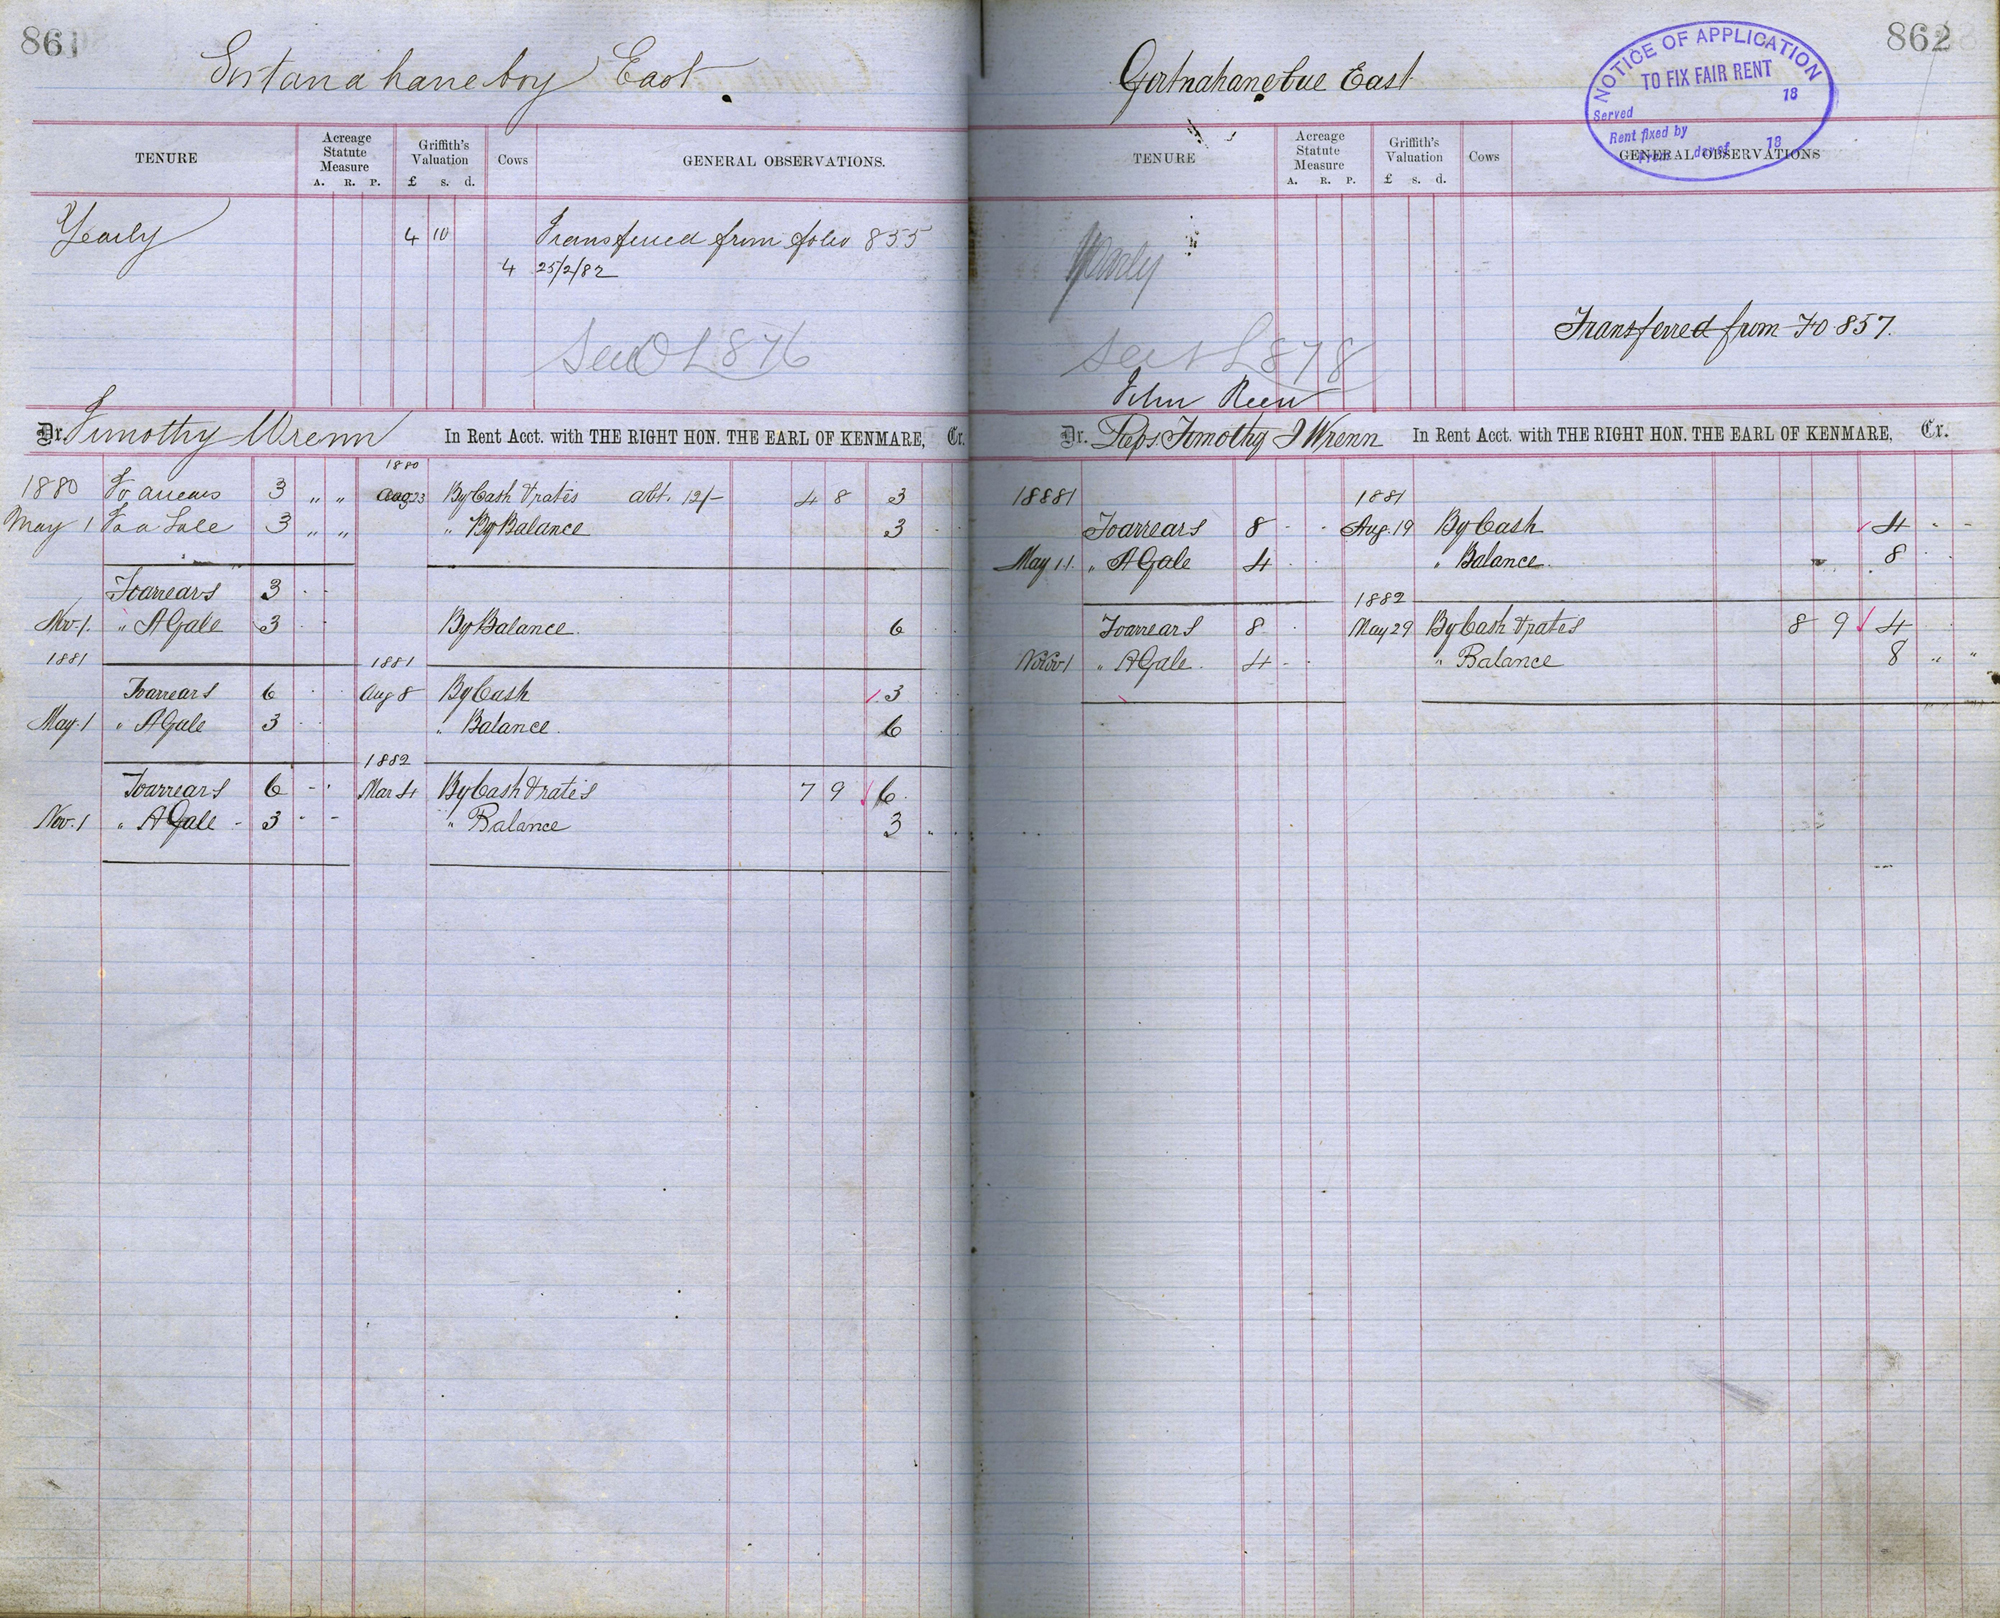 861
Gortanahaneboy East
TENURE
Acreage Statute Measure
A. R. P.
Griffith's Valuation
£ s. d.
Cows
GENERAL OBSERVATIONS.
Yearly 4 10 Transferred from folio 855
4 25/2/82
See O L 876
Dr. Timothy Wrenn In Rent Acct. with THE RIGHT HON. THE EARL OF KENMARE, Cr.
1880
1880 To arrears 3 " " Aug 23 By Cash & rates abt. 12/- 4 8 3
May 1 To a Gale 3 " " " By Balance 3
To arrears 3 - -
Nov. 1. " A Gale 3 By Balance. 6
1881 1881
To arrears 6 - - Aug 8 By Cash 3
May. 1 " A Gale 3 - - " Balance. 6
1882
To arrears 6 - - Mar 4 By Cash & rates 7 9 6
Nov. 1 " A Gale - 3 - - " Balance 3 "
862
Gortnahanebue East
NOTICE OF APPLICATION
TO FIX FAIR RENT
18
Served
Rent fixed by
From day of 18
TENURE
Acreage Statute Measure
A. R. P.
Griffith's Valuation
£ s. d.
Cows
GENERAL OBSERVATIONS
Yearly
Transferred from Fo 857.
See N L 878
John Reen
Dr. Reps. Timothy J Wrenn In Rent Acct. with THE RIGHT HON. THE EARL OF KENMARE, Cr.
18881 1881
To arrears 8 - - Aug. 19 By Cash 4 - -
May 11. " A Gale 4 - " Balance. 8
1882
To arrears 8 - May 29 By Cash & rates 8 9 4
Nov 1 " A Gale. 4 - - " Balance 8 " "